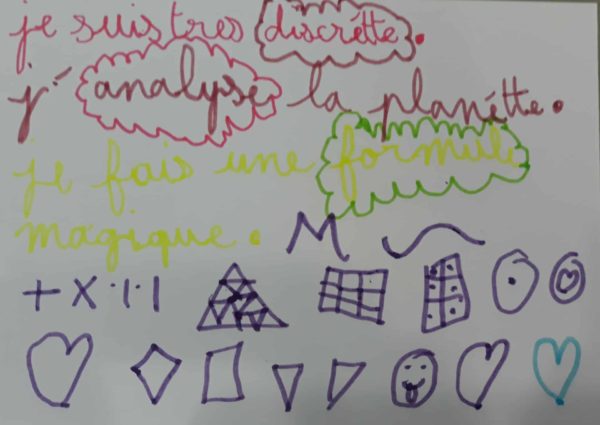 je suis tres discrétte.
j'analyse la planétte.
je fais une formule
magique.